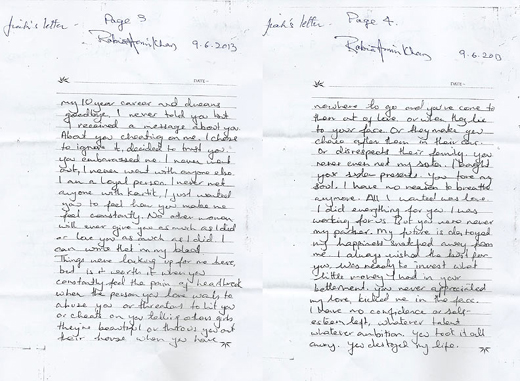 Jiah's letter
Page 3
Rabia Amin Khan
9.6.2013
DATE:
my 10 year career and dreams
goodbye. I never told you but
I received a message about you
About you cheating on me. I chose
to ignore it, decided to trust you.
you embarassed me. I never went
out, I never went with anyone else.
I am a loyal person. I never met
anyone with Kartik, I just wanted
you to feel how you make me
feel constantly. No other woman
will ever give you as much as I did
or love you as much as I did. I
can write that in my blood.
Things were looking up for me here,
but is it worth it when you
constantly feel the pain of heartbreak
when the person you love wants to
abuse you or threatens to hit you
or cheats on you telling other girls
they're beautiful or throws you out
their house when you have
Jiah's letter
Page 4.
Rabia Amin Khan
9.6.2013
DATE:
nowhere to go and you've come to
them out of love. or when they lie
to your face Or they make you
chase after them in their car.
or disrespects their family you
never even met my sister. I bought
your sister presents. You tore my
soul. I have no reason to breathe
anymore. All I wanted was love.
I did everything for you I was
working for us. But you were never
my partner. My future is destroyed
my happiness snatched away from
me I always wished the best for
you, was ready to invest what
little money I had in your
betterment. you never appreciated
my love, kicked me in the face.
I have no confidence or self-
esteem left, whatever talent
whatever ambition. you took it all
away. you destroyed my life.